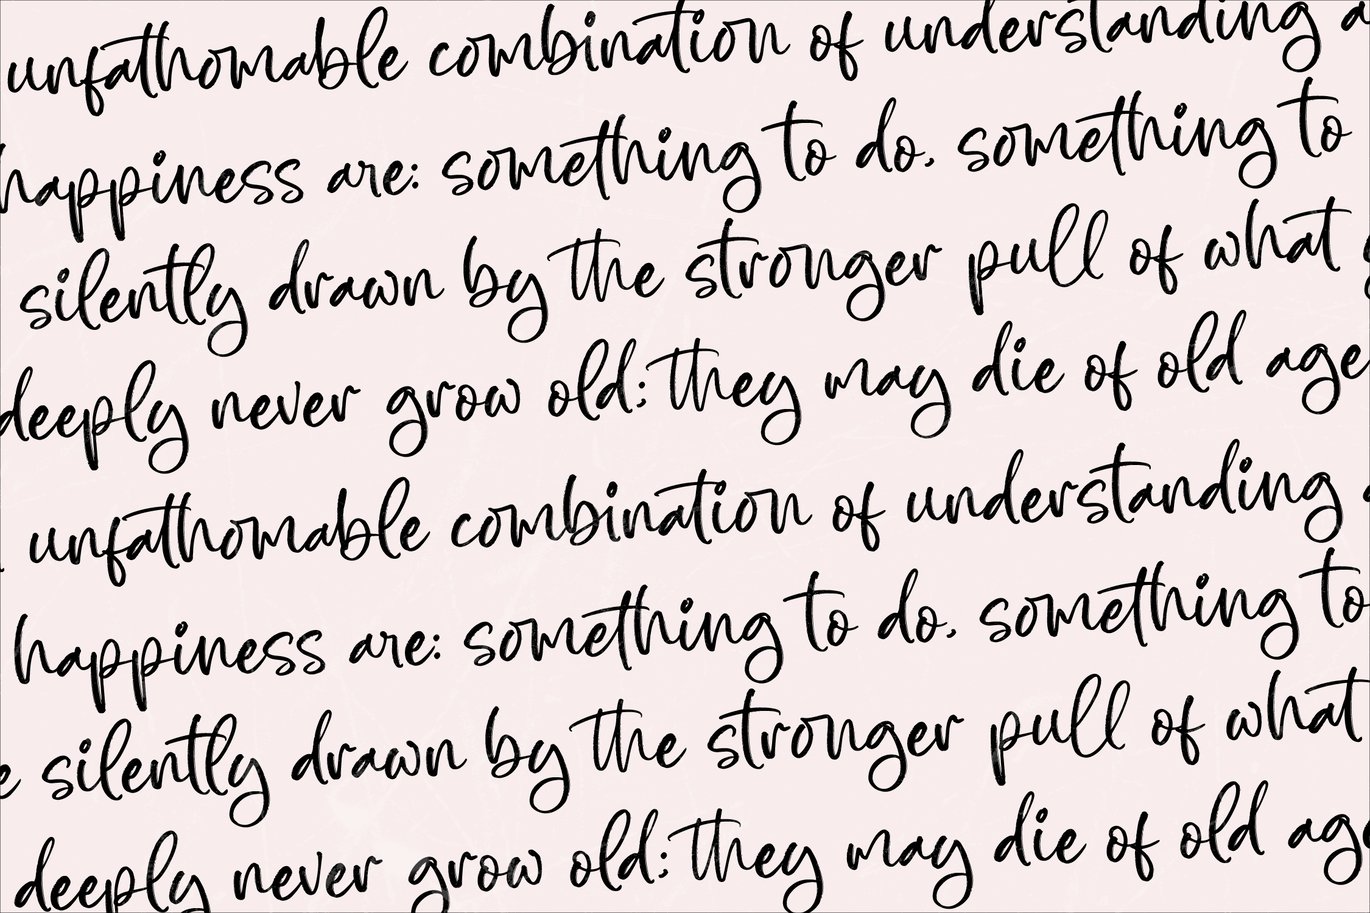 unfathomable combination of understanding a
happiness are: something to do, something to
silently drawn by the stronger pull of what
deeply never grow old; they may die of old age
unfathomable combination of understanding
happiness are: something to do, something to
e silently drawn by the stronger pull of what
deeply never grow old; they may die of old ag